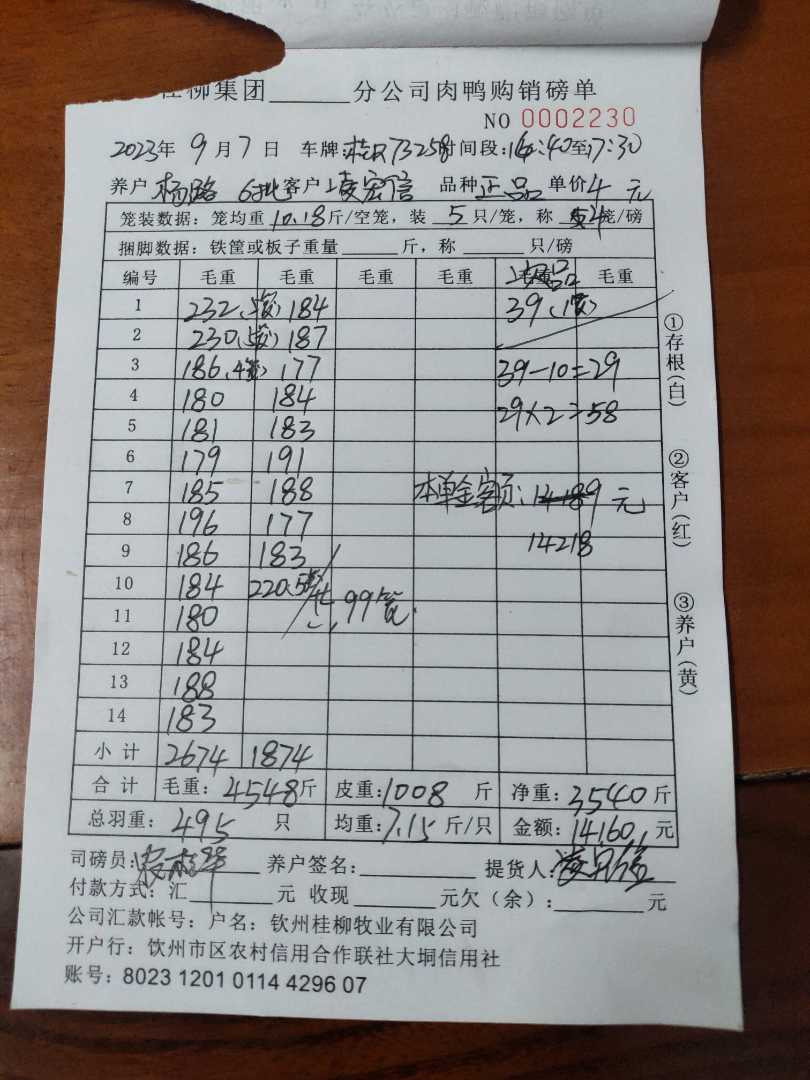 柳集团______分公司肉鸭购销磅单
NO 0002230
2023年 9月7日 车牌:桂R73258时间段:14:40至17:30
养户 杨路 6批客户 凌宏信 品种正品 单价4元
笼装数据：笼均重10.18斤/空笼，装 5 只/笼，称 4笼/磅
捆脚数据：铁筐或板子重量______斤，称______只/磅
编号 毛重 毛重 毛重 毛重 毛重 毛重
1 232(5笼) 184 39(1笼)
2 230(5笼) 187
3 186(4笼) 177 39-10=29
4 180 184 29×2=58
5 181 183
6 179 191
7 185 188 本单金额:14189元
8 196 177 14218
9 186 183
10 184 220.5笼 共99笼
11 180
12 184
13 188
14 183
小计 2674 1874
合计 毛重：4548斤 皮重:1008斤 净重:3540斤
总羽重：495只 均重:7.15斤/只 金额:14160元
司磅员: 养户签名: 提货人:
付款方式：汇______元 收现______元欠（余）:______元
公司汇款帐号：户名：钦州桂柳牧业有限公司
开户行：饮州市区农村信用合作联社大垌信用社
账号：8023 1201 0114 4296 07
①存根(白)
②客户(红)
③养户(黄)